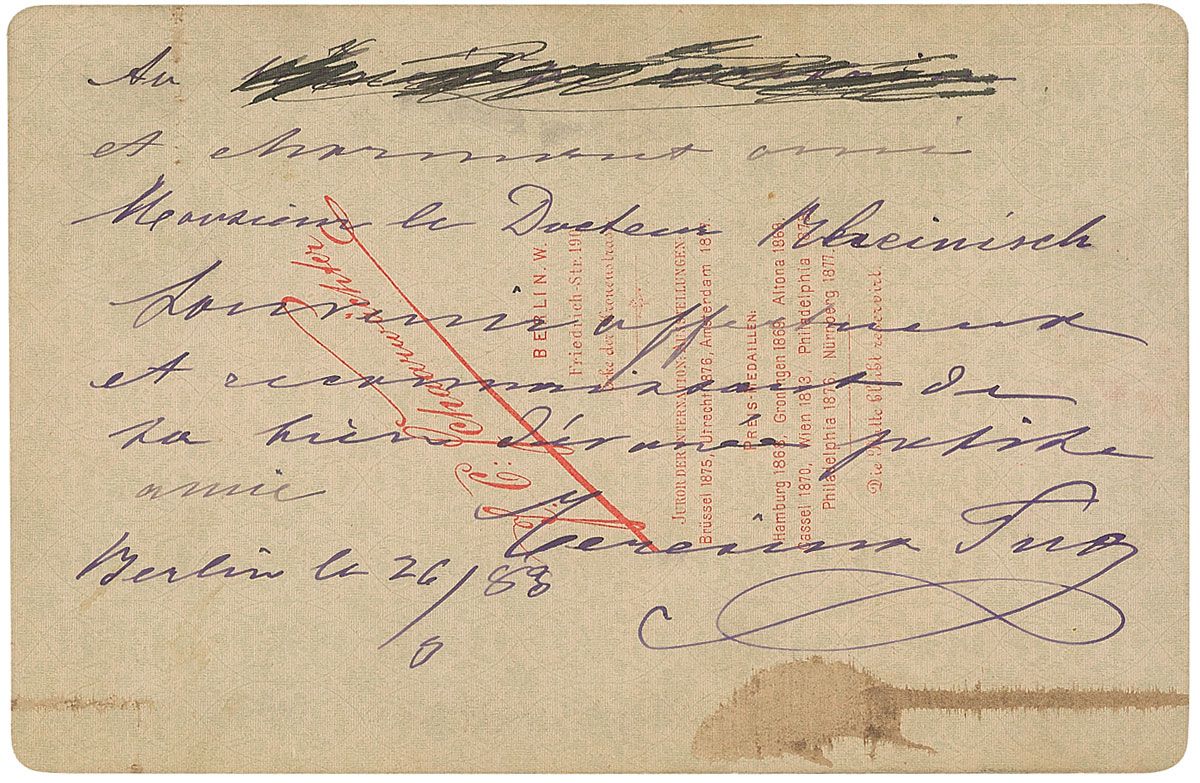 Au
et charmant ami
Monsieur le Docteur Rheinisch
Souvenir affectueux
et reconnaissant de
sa bien dévouée petite
amie
Teresina Tua
Berlin le 26/ 83
J. C. Schaarwächter
BERLIN. W.
Friedrich-Str. 190
Ecke der Kronenstrasse
JUROR DER INTERNATION. AUSSTELLUNGEN:
Brüssel 1875, Utrecht 1876, Amsterdam 1877.
PREIS-MEDAILLEN:
Hamburg 1868, Groningen 1869, Altona 1869,
Cassel 1870, Wien 1873, Philadelphia 1876
Philadelphia 1876, Nürnberg 1877.
Die Platte bleibt reservirt.